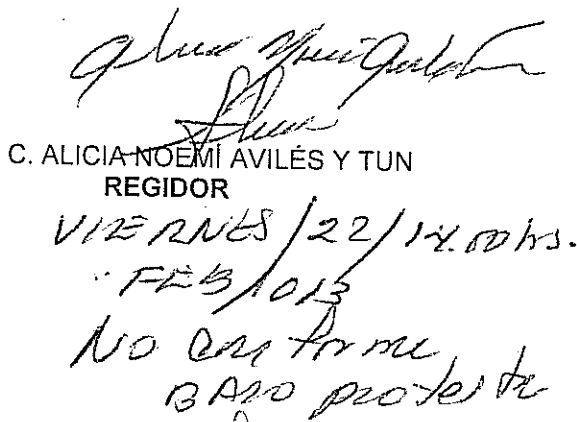 C. ALICIA NOEMÍ AVILÉS Y TUN
REGIDOR
VIERNES/22/14.00 hrs.
FEB/013
NO conforme
BAJO protesta